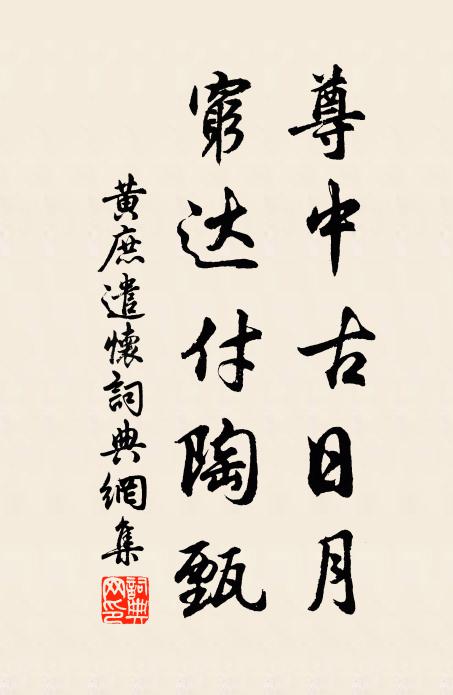 尊中古日月
窮达付陶甄
黃庶遣懷詞典網集
詞典网印